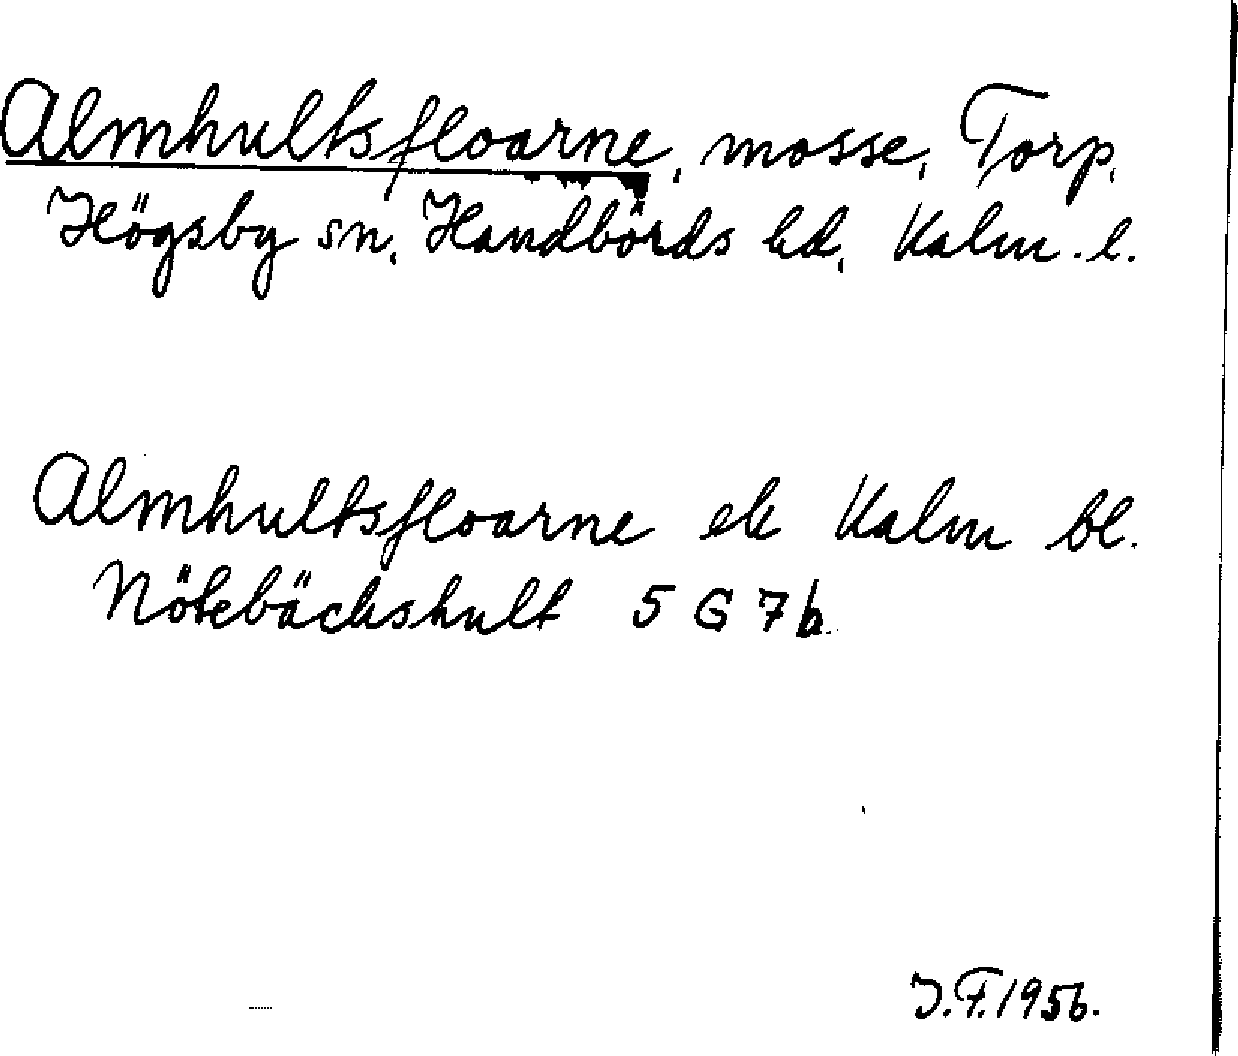 Almhultsfloarne, mosse, Torp,
Högsby sn, Handbörds hd, Kalm. l.
Almhultsfloarne ek Kalm bl.
Nötebäckshult 5 G 7 b.
J.F. 1956.